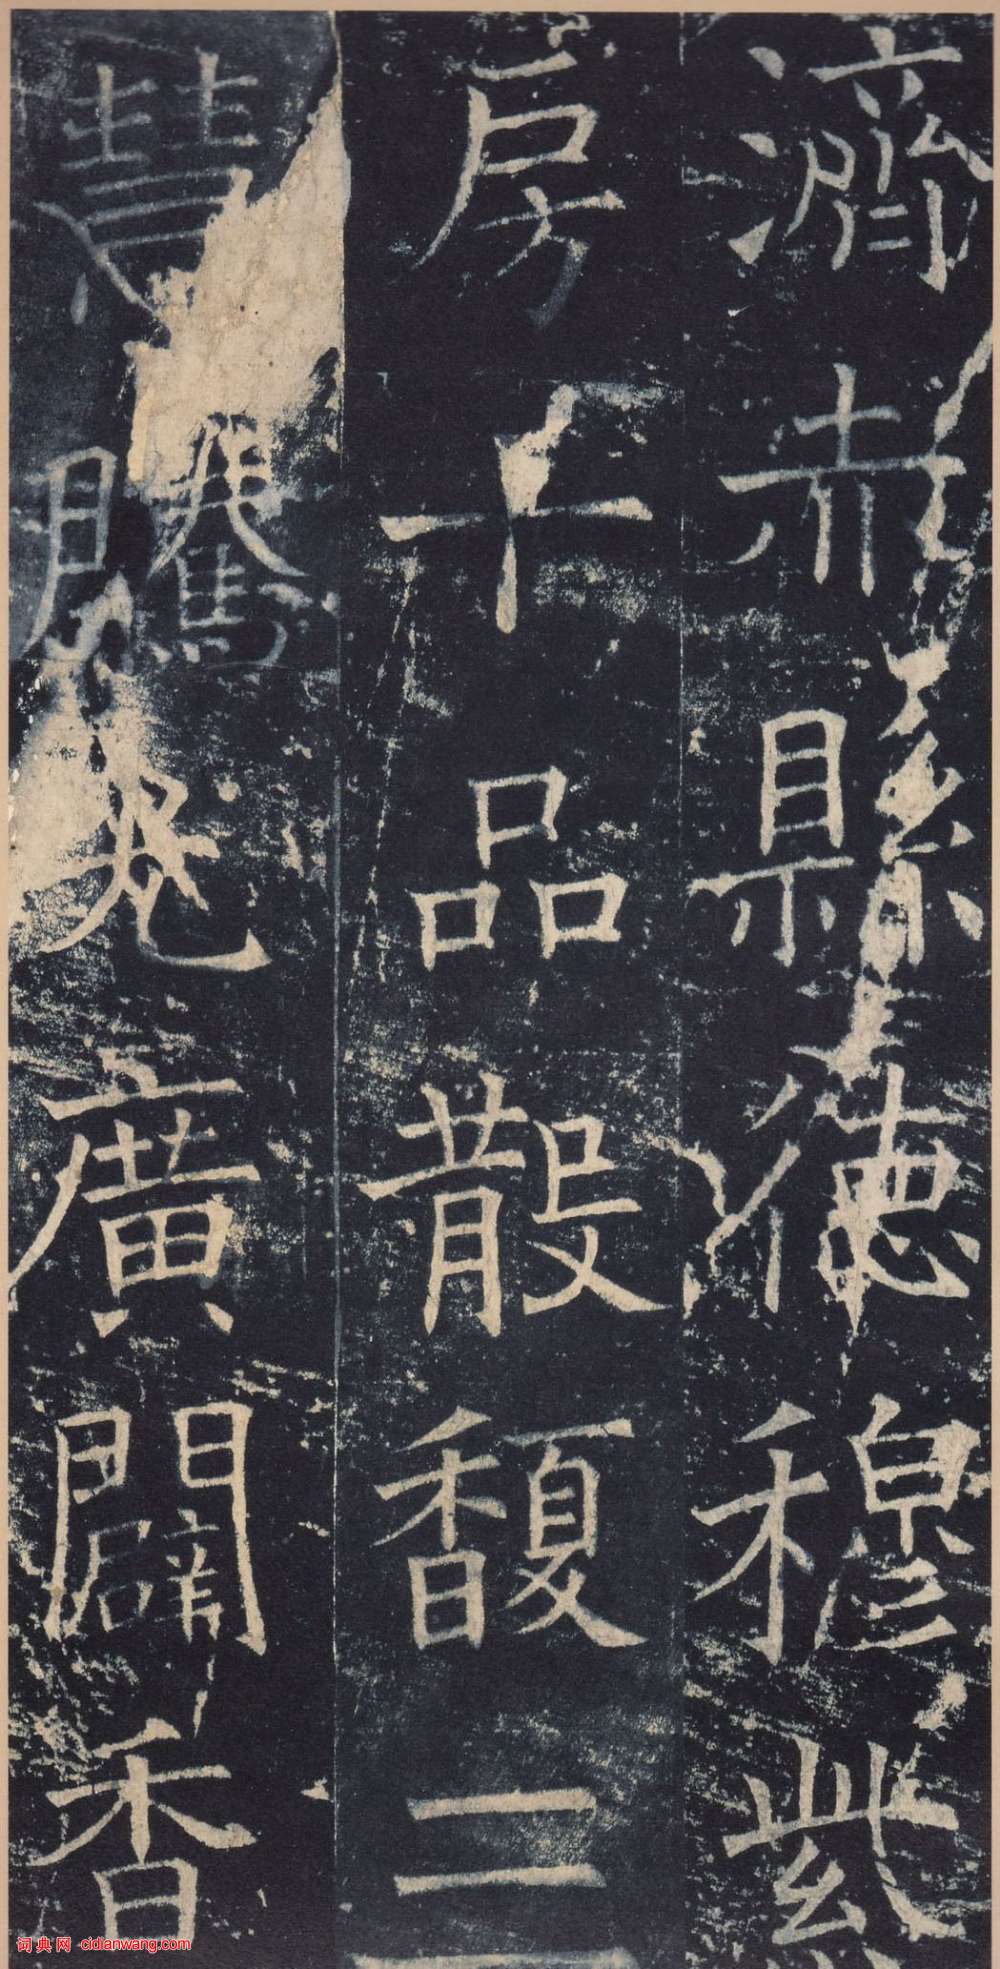 濟赤縣德穆紫
房十品散馥三
慧騰晃廣闢香
词典网 cidianwang.com